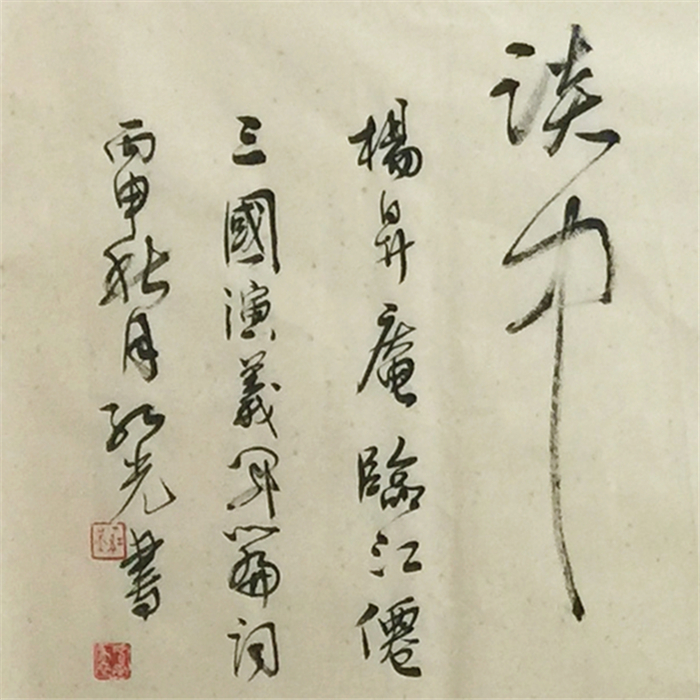 談中
楊昇庵臨江僊
三國演義開篇詞
丙申秋月紅光書